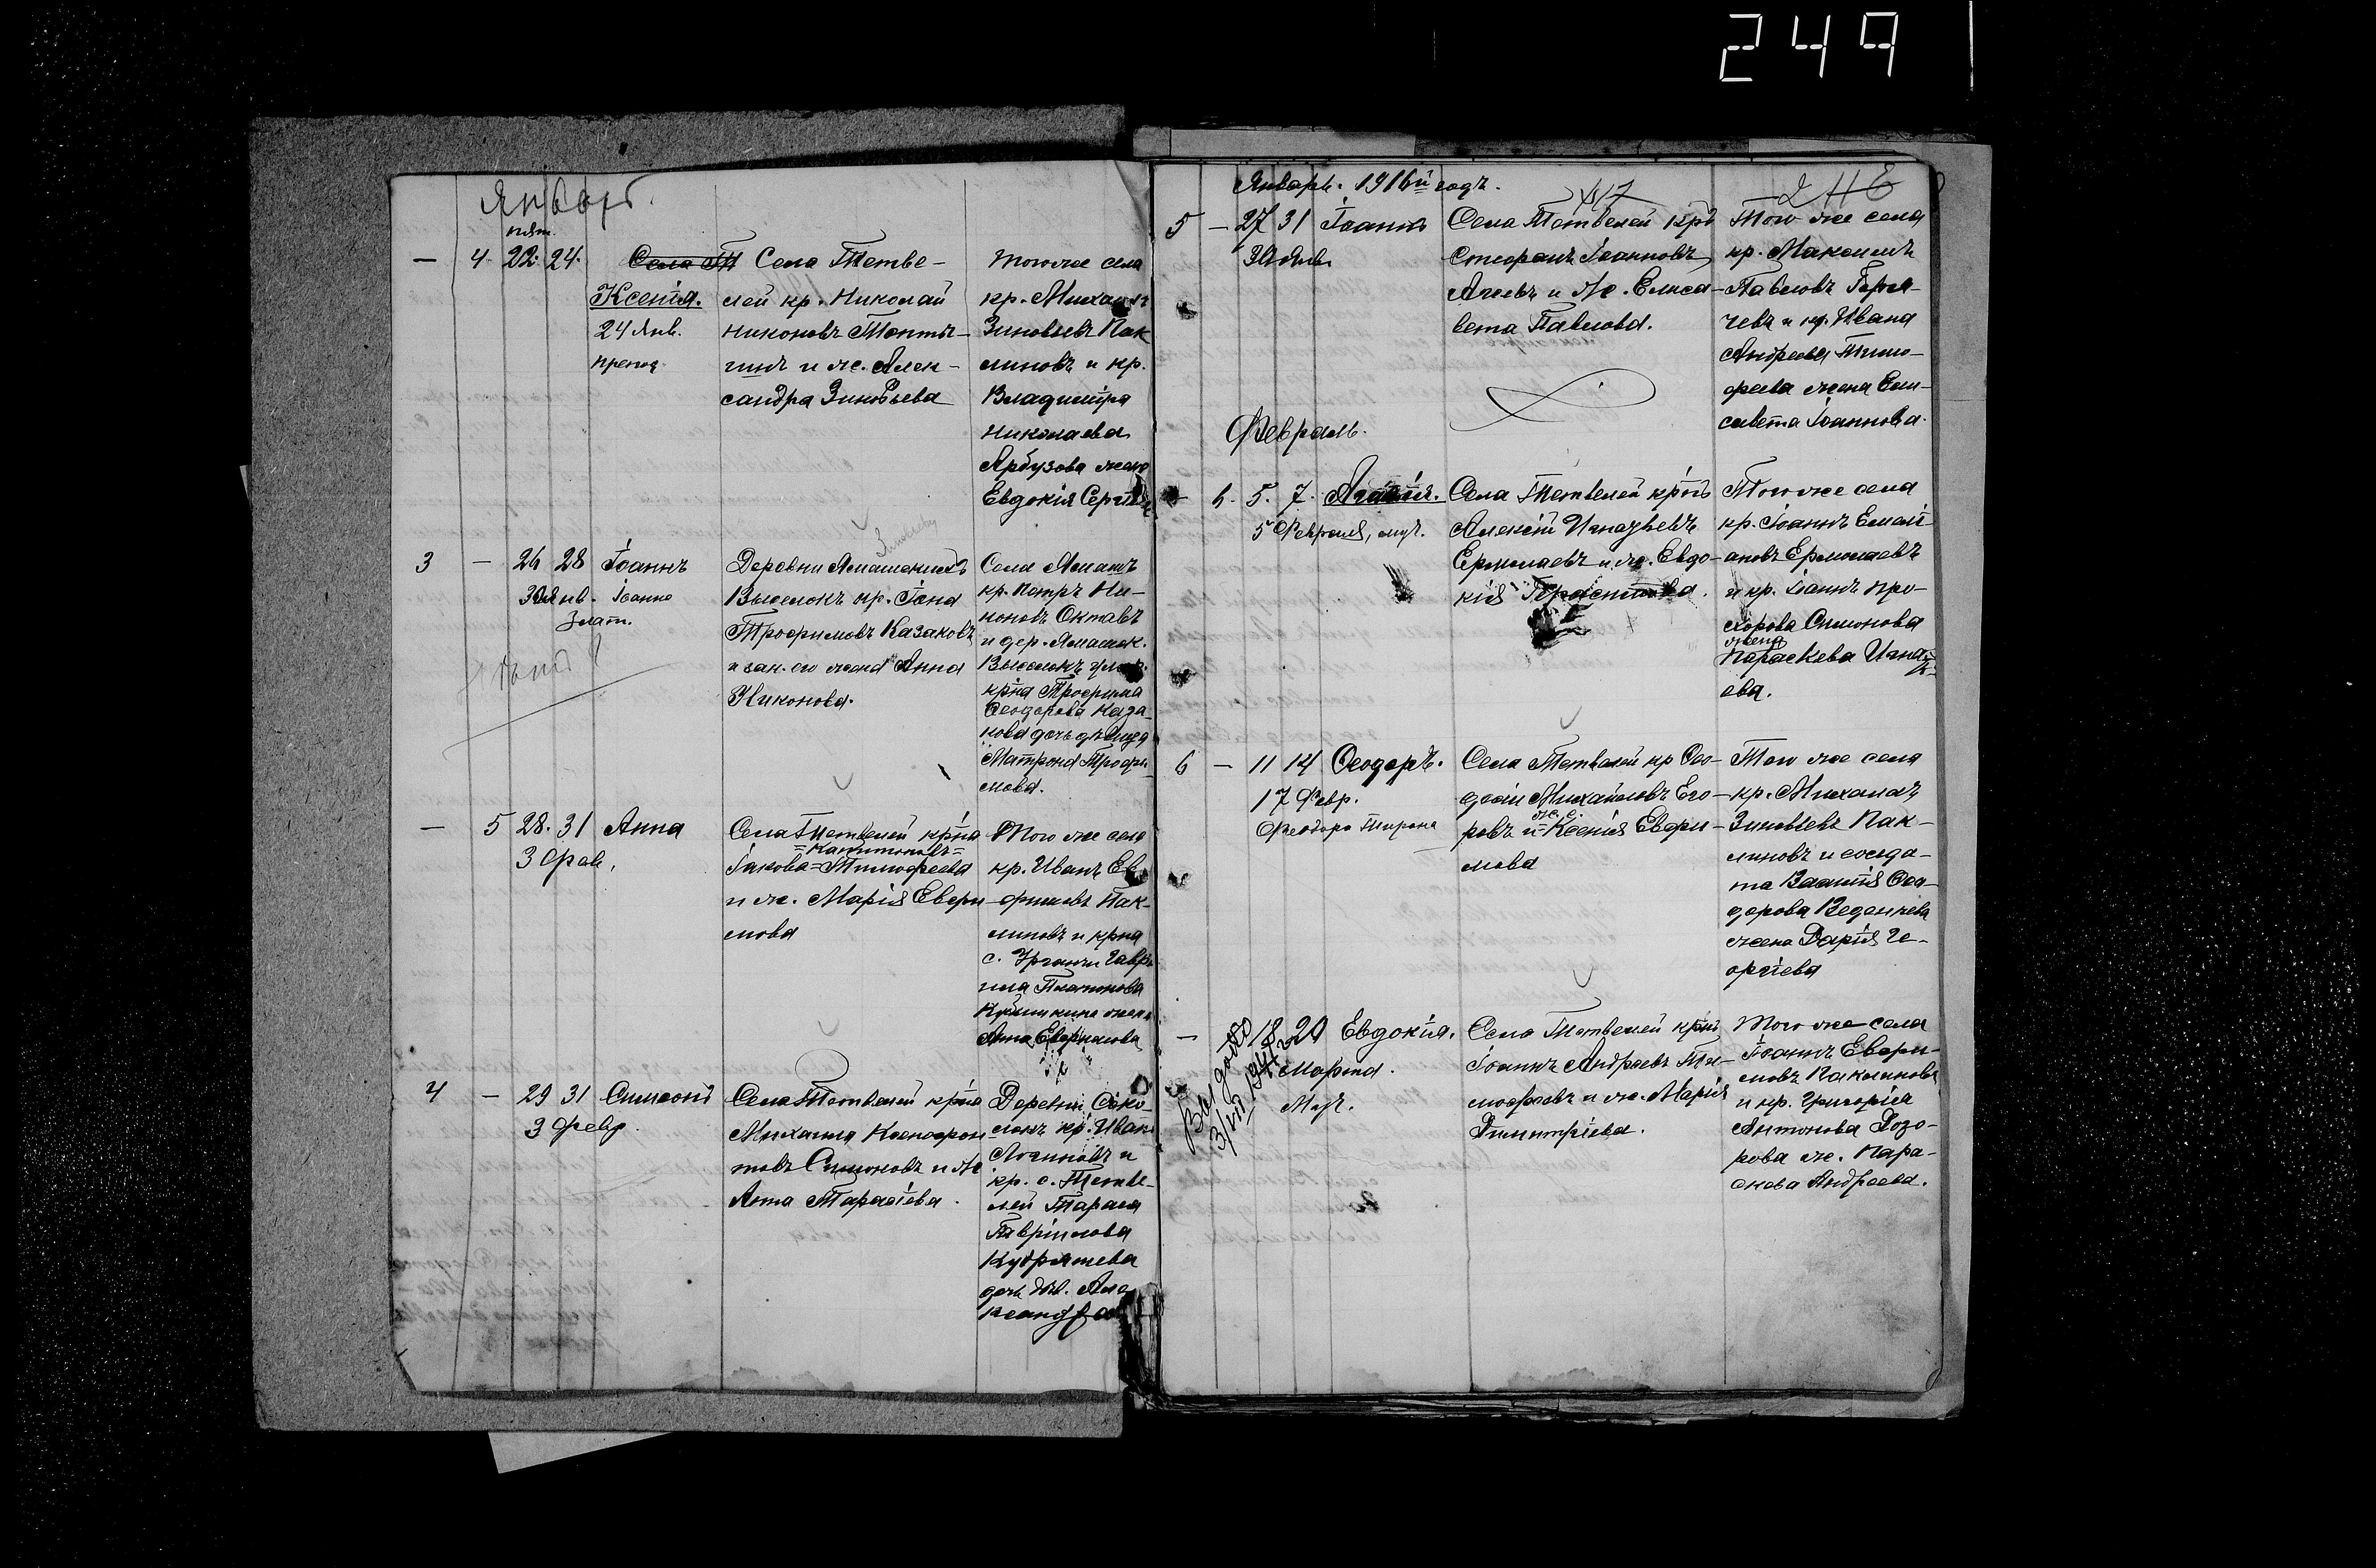 249
Январь.
пят.
— 4 22. 24. Села Т Села Тетве-
Ксенія. лей кр. Николай
24 Янв. Никоновъ Топты-
препод. гинъ и ж. Алек-
сандра Зиновьева
Того же села
кр. Михаилъ
Зиновьевъ Пак
линовъ и кр.
Владиміра
Николаева
Арбузова жена
Евдокія Сергіева
3 — 26 28 Іоаннъ
30 Янв. Іоанна
Злат.
Деревни Ямашенскихъ
Выселокъ кр. Іона
Трофимовъ Казаковъ
и зак. его жена Анна
Никонова.
Села Ямашъ
кр. Петръ Ни-
коновъ Октавъ
и дер. Ямашск.
Выселокъ
кр͠на Трофима
Ѳеодорова Каза-
кова дочь дѣвица
Матрона Трофи-
мова.
— 5 28. 31 Анна
3 фев.
Села Тетвелей кр͠на
=Капитоновъ=
Іакова=Тимофеева
и ж. Марія Евфи-
мова
Того же села
кр. Иванъ Ев-
фимовъ Пак-
линовъ и кр͠на
с. Урганчи Гаврі-
ила Платонова
жена
Анна Евфимова
4 — 29 31 Симеонъ
3 февр.
Села Тетвелей кр͠на
Михаила Ксенофон
товъ Симоновъ и ж
Анна Тарасіева.
Деревни Соко-
локъ кр. Иванъ
Логиновъ и
кр. с. Тетве-
лей Тарасія
Гавріилова
Кудряшева
дочь дѣв. Але
ксандра
Январь. 1916й годъ.
417 246
5 — 27 31 Іоаннъ
30 Янв.
Села Тетвелей кр͠нъ
Стефанъ Іоанновъ
Агеевъ и ж. Елиса-
вета Павлова.
Того же села
кр. Максимъ
Павловъ Горя-
чевъ и кр. Ивана
Андреева Тимо-
феева жена Ели-
савета Іоаннова.
Февраль.
— 6. 5. 7. Агафія.
5 Февраля, муч.
Села Тетвелей кр͠нъ
Алексій Игнатьевъ
Ермолаевъ и ж. Евдо-
кія
Того же села
кр. Іоаннъ Емелі-
ановъ Ермолаевъ
и кр. Іоаннъ Про-
хорова Симонова
жена
Параскева Игнаті-
ева.
6 — 11 14 Ѳеодоръ.
17 Февр.
Ѳеодора Тирона
Села Тетвелей кр Ѳео-
досій Михайловъ Его-
ж. е.
ровъ и=Ксенія Евфи-
мова
Того же села
кр. Михаилъ
Зиновьевъ Пак-
линовъ и солда-
та Василія Ѳео-
дорова Веденеева
жена Дарія Ге-
оргіева
— 18 20 Евдокія.
1 Марта.
Муч.
Села Тетвелей кр͠нъ
Іоаннъ Андреевъ Ти-
мофеевъ и ж. Марія
Димитріева.
Того же села
Іоаннъ Евфи-
мовъ Паклиновъ
и кр. Григорія
Антонова Розо-
рова ж. Пара-
скева Андреева.